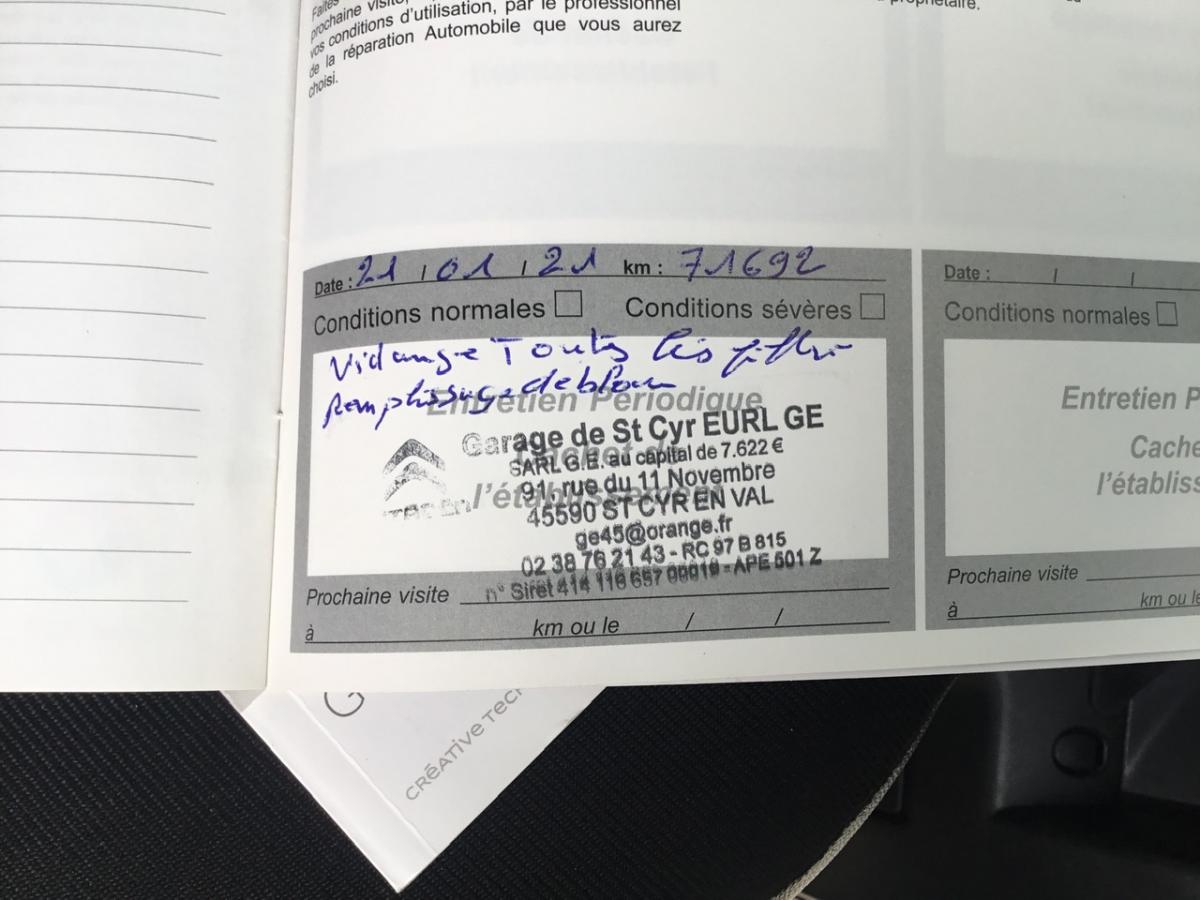 prochaine visite,
vos conditions d'utilisation, par le professionnel
de la réparation Automobile que vous aurez
choisi.
propriétaire.
Date : 21 / 01 / 21 km : 71692
Conditions normales Conditions sévères
Vidange Toutes les filtre
Remplissage de
Entretien Périodique
Cachet de
l'établissement
Garage de St Cyr EURL GE
SARL G.E. au capital de 7.622 €
91, rue du 11 Novembre
45590 ST CYR EN VAL
ge45@orange.fr
02 38 76 21 43 - RC 97 B 815
n° Siret 414 116 657 00019 - APE 501 Z
Prochaine visite
à km ou le / /
Date : / /
Conditions normales
Entretien P
Cache
l'établiss
Prochaine visite
à km ou le
CRÉATIVE TECH